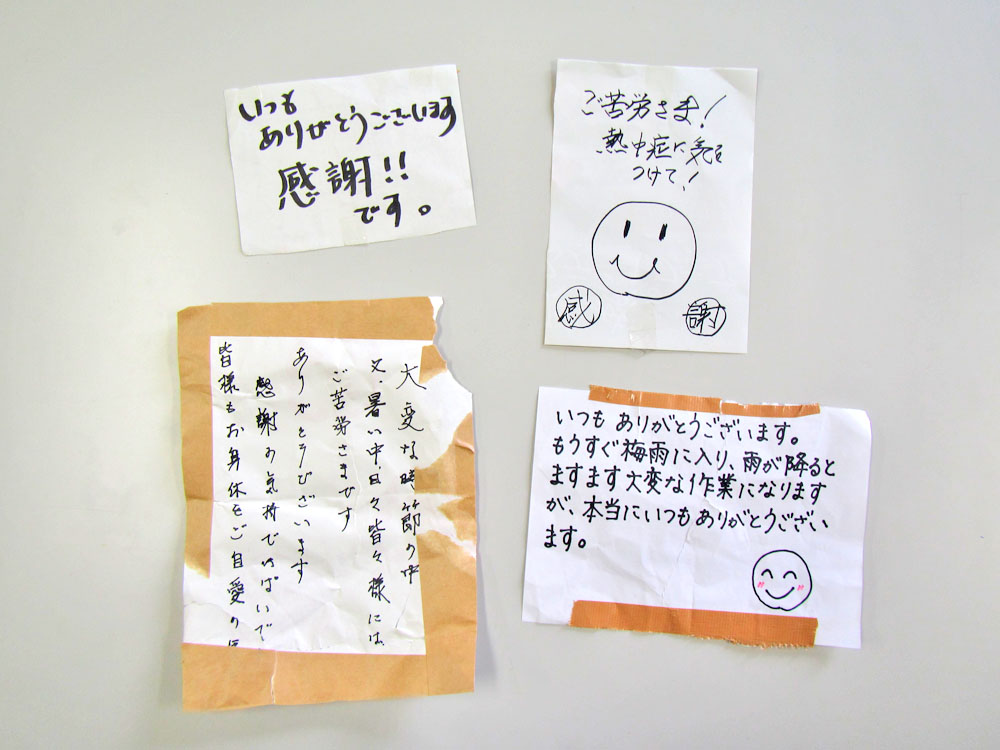 いつも
ありがとうございます
感謝!!
です。
ご苦労さま!
熱中症に気を
つけて!
感 謝
大変な時節の中
又、暑い中、日々皆々様には、
ご苦労さまです
ありがとうございます
感謝の気持でいっぱいで
皆様もお身体をご自愛の
いつも ありがとうございます。
もうすぐ梅雨に入り、雨が降ると
ますます大変な作業になります
が、本当にいつもありがとうござい
ます。